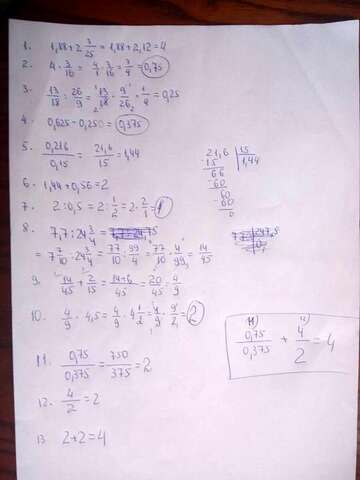 1. 1,88+2 3/25 = 1,88+2,12=4
2. 4 · 3/16 = 4/1 · 3/16 = 3/4 = 0,75
3. 13/18 : 26/9 = 13/18 · 9/26 = 1/4 = 0,25
4. 0,625-0,250 = 0,375
5. 0,216/0,15 = 21,6/15 = 1,44
21,6 | 15
15 | 1,44
66
60
60
60
0
6. 1,44+0,56=2
7. 2:0,5 = 2: 1/2 = 2· 2/1 =
8. 7,7:24 3/4 =
= 7 7/10 : 24 3/4 = 77/10 : 99/4 = 77/10 · 4/99 = 14/45
9. 14/45 + 2/15 = 14+6/45 = 20/45 = 4/9
10. 4/9 · 4,5 = 4/9 · 4 1/2 = 4/9 · 9/2 = 2
11) 12)
0,75/0,375 + 4/2 = 4
11. 0,75/0,375 = 750/375 = 2
12. 4/2 = 2
13 2+2=4